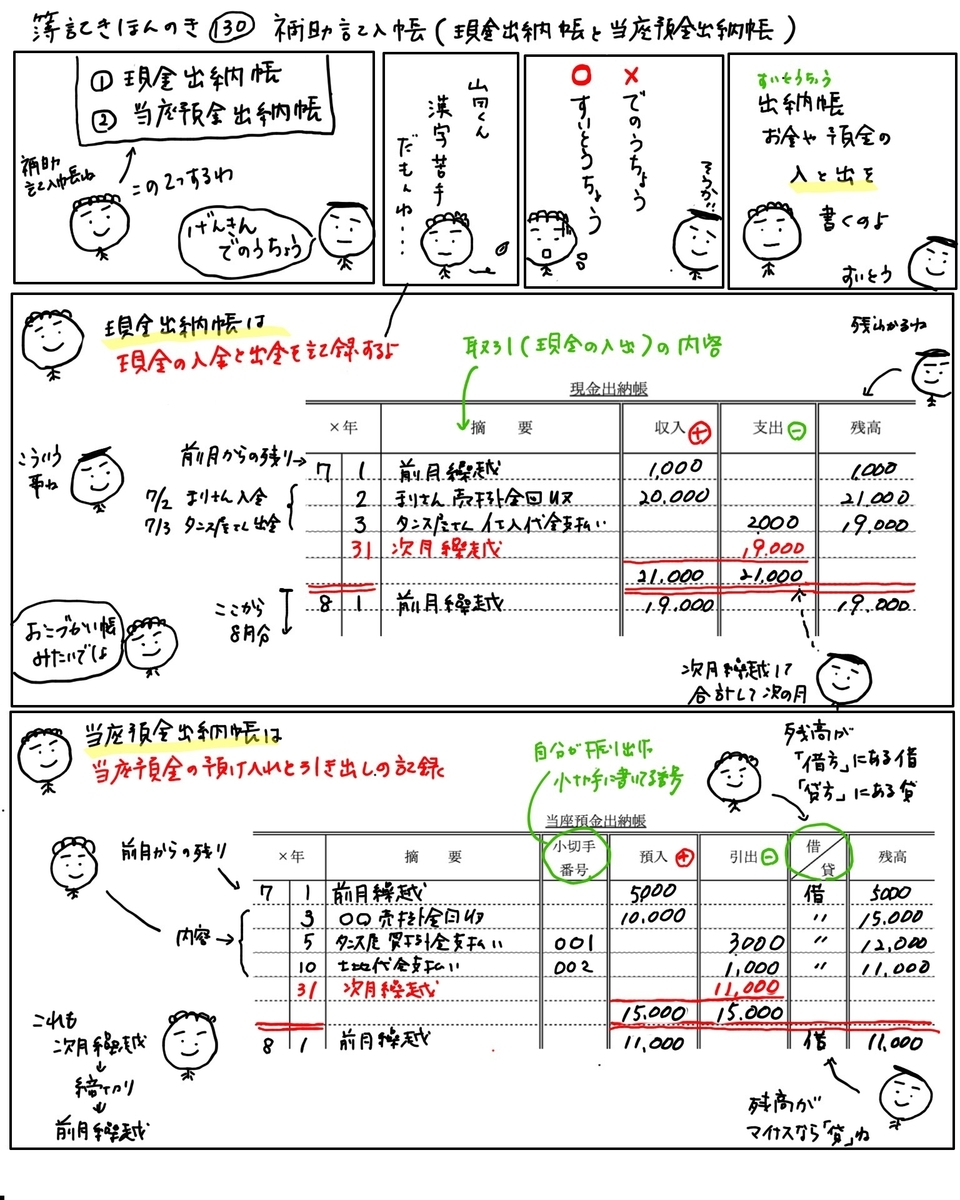 簿記きほんのき 130 補助記入帳(現金出納帳と当座預金出納帳)
① 現金出納帳
② 当座預金出納帳
補助
記入帳ね
この2つするわ
げんきん
でのうちょう
山田くん
漢字苦手
だもんね・・・
× でのうちょう
○ すいとうちょう
そうか!!
すいそうちょう
出納帳
お金や預金の
入と出を
書くのよ
すいとう
現金出納帳は
現金の入金と出金を記録するよ
取引(現金の入出)の内容
残高わかるね
現金出納帳
×年 摘 要 収入 + 支出 − 残高
こういう
事ね
前月からの残り→
7 1 前月繰越 1,000 1,000
7/2 まりさん入金
2 まりさん売掛金回収 20,000 21,000
7/3 タンス屋さん出金
3 タンス屋さん仕入代金支払い 2000 19,000
31 次月繰越 19,000
21,000 21,000
8 1 前月繰越 19,000 19,000
ここから
8月分
おこづかい帳
みたいでしょ
次月繰越して
合計して次の月
当座預金出納帳は
当座預金の預け入れと引き出しの記録
自分が振り出した
小切手に書いてる番号
残高が
「借方」にある借
「貸方」にある貸
当座預金出納帳
×年 摘 要 小切手番号 預入 + 引出 − 借/貸 残高
前月からの残り
7 1 前月繰越 5000 借 5000
3 〇〇売掛金回収 10,000 〃 15,000
内容→
5 タンス屋買掛金支払い 001 3000 〃 12,000
10 土地代金支払い 002 1,000 〃 11,000
31 次月繰越 11,000
15,000 15,000
8 1 前月繰越 11,000 借 11,000
これも
次月繰越
↓
締切り
↓
前月繰越
残高が
マイナスなら「貸」ね